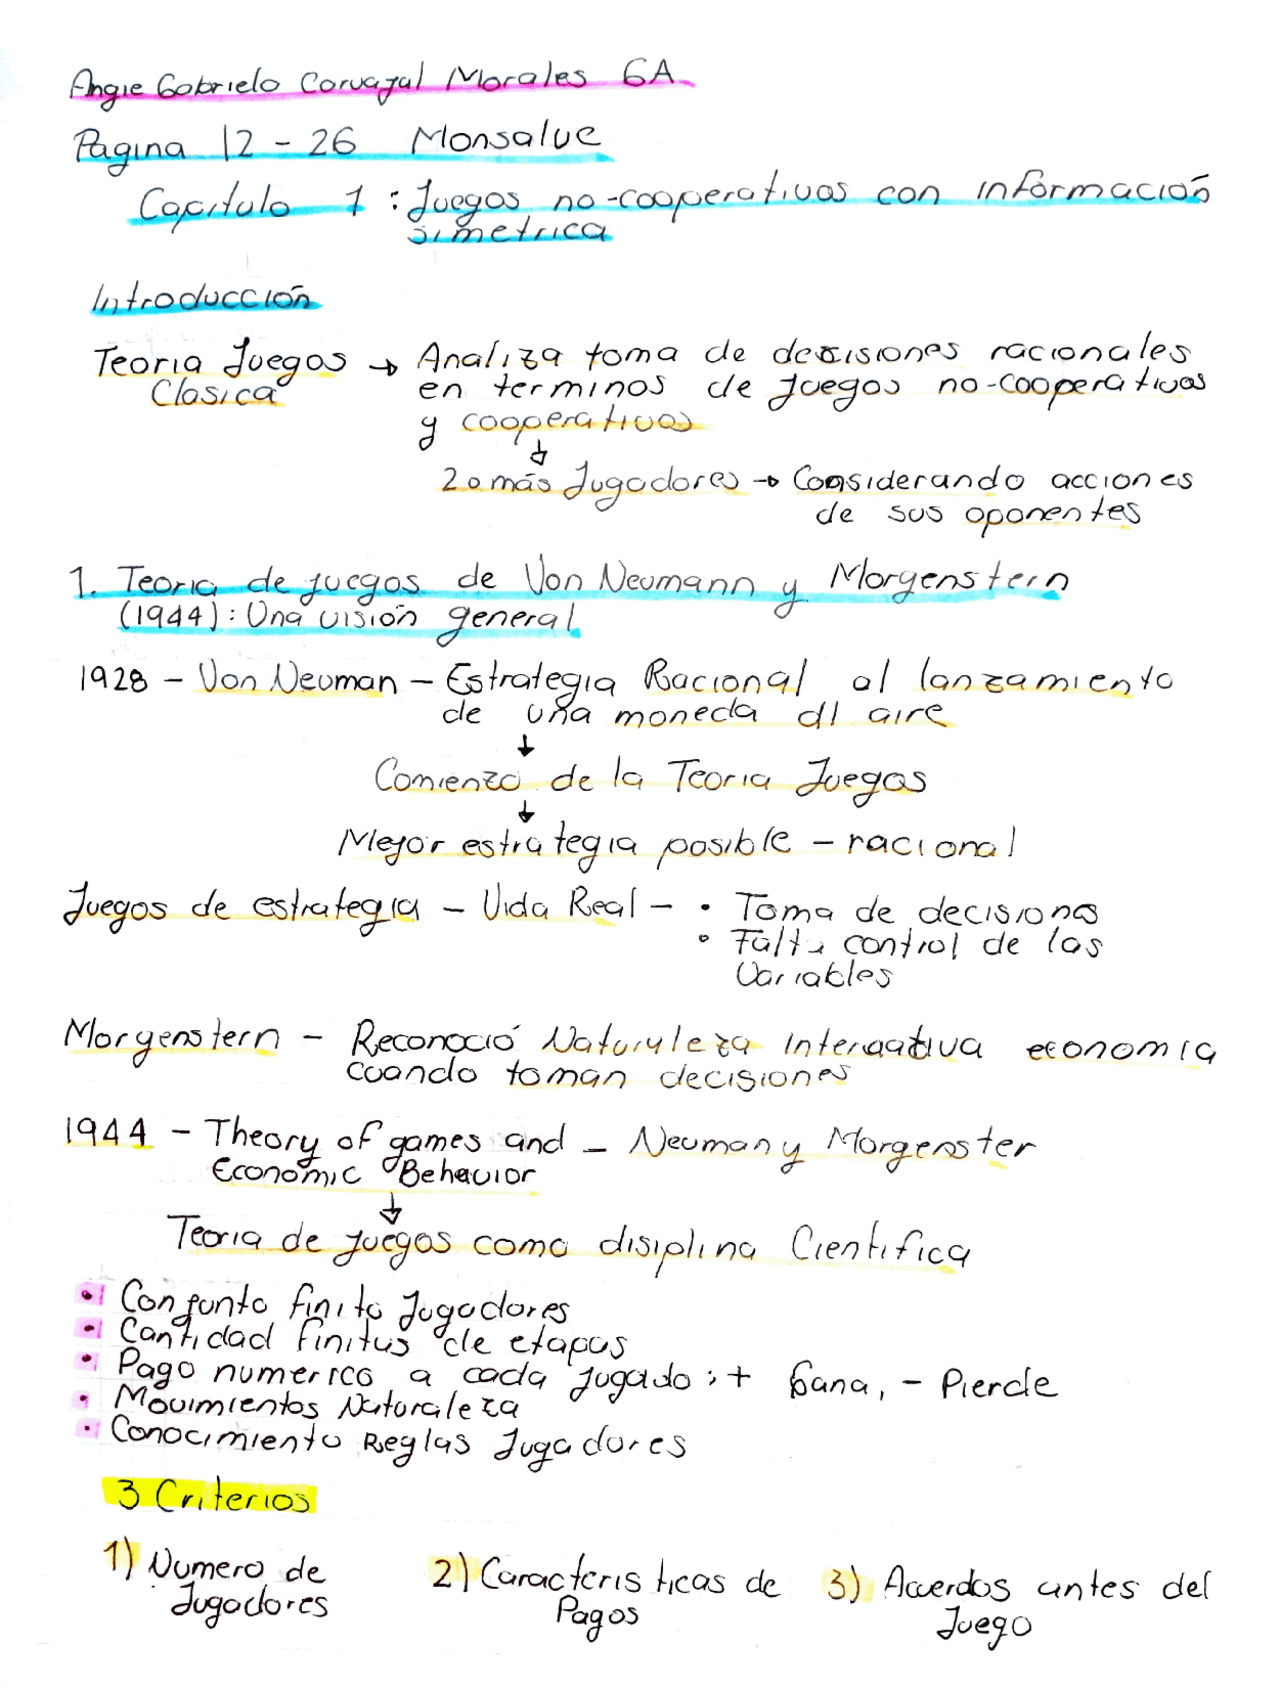 Angie Gabriela Carvajal Morales 6A
Pagina 12 - 26 Monsalve
Capitulo 1 : Juegos no-cooperativos con información
simetrica
Introducción
Teoria Juegos → Analiza toma de decisiones racionales
Clasica en terminos de Juegos no-cooperativos
y cooperativos
↓
2 o más Jugadores → Considerando acciones
de sus oponentes
1. Teoria de juegos de Von Neumann y Morgenstern
(1944): Una visión general
1928 - Von Neuman - Estrategia Racional al lanzamiento
de una moneda al aire
↓
Comienzo de la Teoria Juegos
↓
Mejor estrategia posible - racional
Juegos de estrategia - Vida Real - • Toma de decisiones
• Falta control de las
Variables
Morgenstern - Reconoció Naturaleza interactiva economia
cuando toman decisiones
1944 - Theory of games and - Neuman y Morgenster
Economic Behavior
↓
Teoria de juegos como disiplina Cientifica
• Conjunto finito Jugadores
• Cantidad finitas de etapas
• Pago numerico a cada jugado: + Gana, - Pierde
• Movimientos Naturaleza
• Conocimiento Reglas Jugadores
3 Criterios
1) Numero de 2) Caracteristicas de 3) Acuerdos antes del
Jugadores Pagos Juego